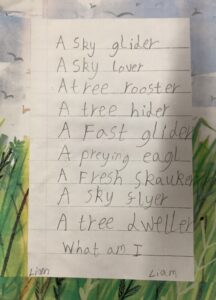 A sky glider
A Sky lover
A tree rooster
A tree hider
A Fast glider
A preying eagl
A Fresh
A sky flyer
A tree dweller
What am I
Liam Liam